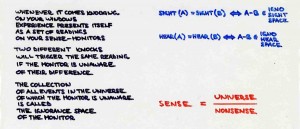 WHENEVER IT COMES KNOCKING
ON YOUR WINDOWS
EXPERIENCE PRESENTS ITSELF
AS A SET OF READINGS
ON YOUR SENSE-MONITORS
TWO DIFFERENT KNOCKS
WILL TRIGGER THE SAME READING
IF THE MONITOR IS UNAWARE
OF THEIR DIFFERENCE.
THE COLLECTION
OF ALL EVENTS IN THE UNIVERSE
OF WHICH THE MONITOR IS UNAWARE
IS CALLED
THE IGNORANCE SPACE
OF THE MONITOR
SIGHT (A) = SIGHT (B) ⇔ A-B ∈ IGNO
SIGHT
SPACE
HEAR (A) = HEAR (B) ⇔ A-B ∈ IGNO
HEAR
SPACE
SENSE = UNIVERSE
NONSENSE